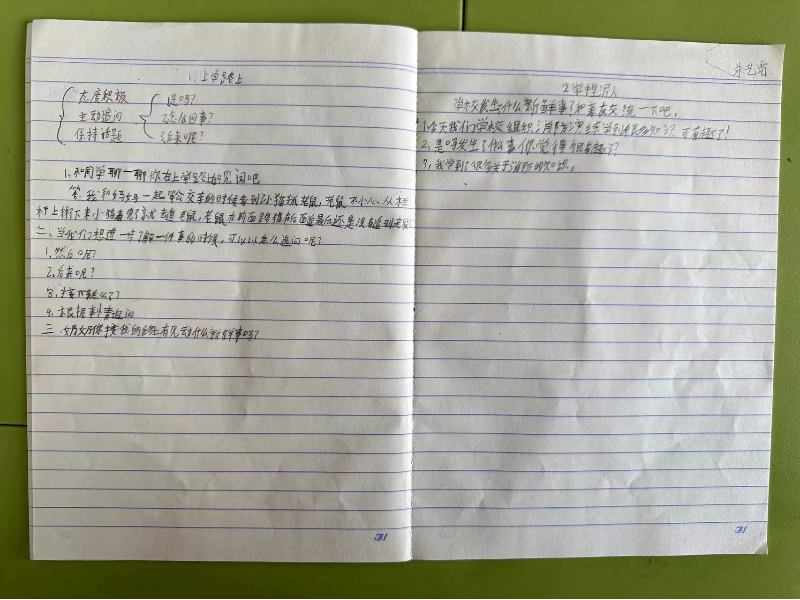 1. 上学路上
态度积极
主动追问
保持话题
1.是吗?
2.怎么回事?
3.后来呢?
1.和同学聊一聊你在上学路上的见闻吧
答:我和妈妈一起等公交车的时候看到了小猫抓老鼠,老鼠不小心从木
杆上掉下来小猫看见了就去追老鼠,老鼠在前面跑猫在后面追最后还是没有追到老鼠
二、当我们想进一步了解一件事的时候,可以怎么追问呢?
1.然后呢?
2.后来呢?
3.接下来怎么了?
4.根据事追问
三.妈妈你接我的路上有见到什么新鲜事吗?
31
朱艺
2学程沉入
学校发生什么新鲜事?和亲友交流一下吧,
1.今天我们学校组织消防演练学到很多知识?可有趣了!
2,是吗发生了什么事你觉得很有趣?
3,我学到了很多关于消防的知识。
31